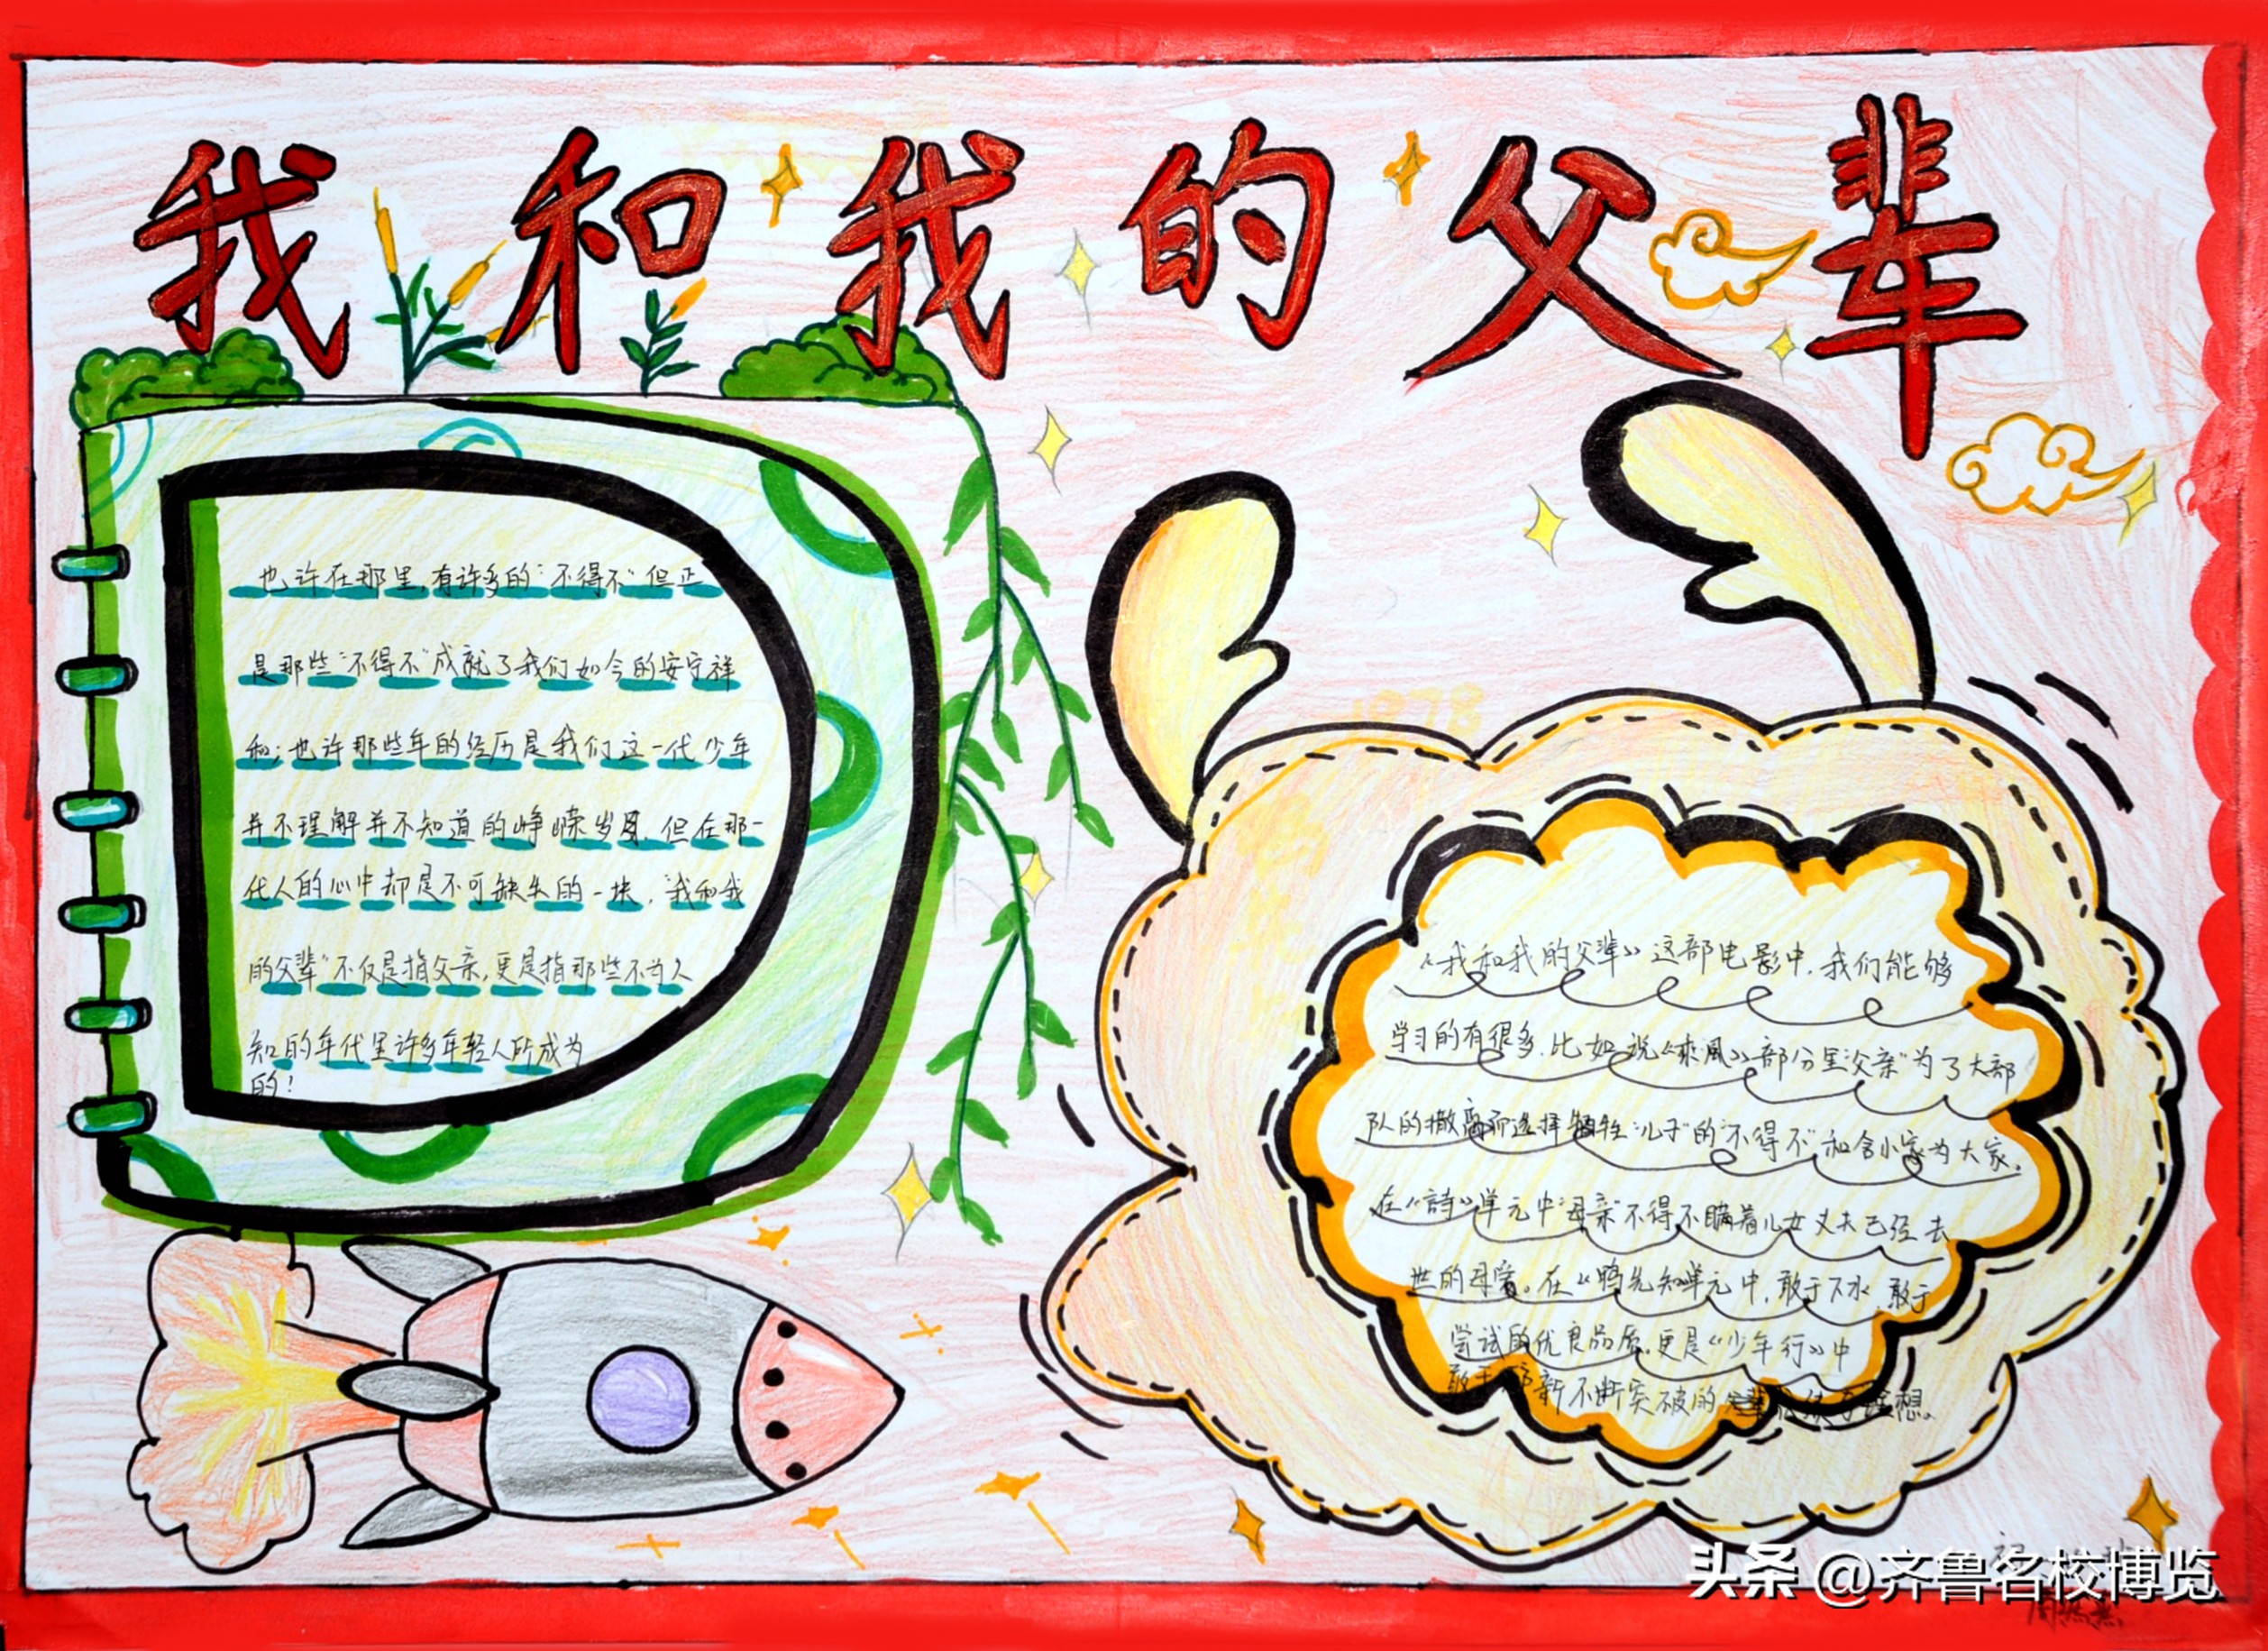 我和我的父辈
也许在那里,有许多的“不得不”但正
是那些“不得不”成就了我们如今的安宁祥
和;也许那些年的经历是我们这一代少年
并不理解并不知道的峥嵘岁月,但在那一
代人的心中却是不可缺失的一块,“我和我
的父辈”不仅是指父亲,更是指那些不为人
知的年代里许多年轻人所成为
的!
1978
《我和我的父辈》这部电影中,我们能够
学习的有很多,比如说《乘風》部分里“父亲”为了大部
队的撤离而选择牺牲“儿子”的“不得不”和舍小家为大家,
在《詩》单元中“母亲”不得不瞒着儿女丈夫已经去
世的母爱。在《鸭先知》单元中,敢于下水,敢于
尝试的优良品质,更是《少年行》中
敢于 新不断突破的 想。
头条 @齐鲁名校博览